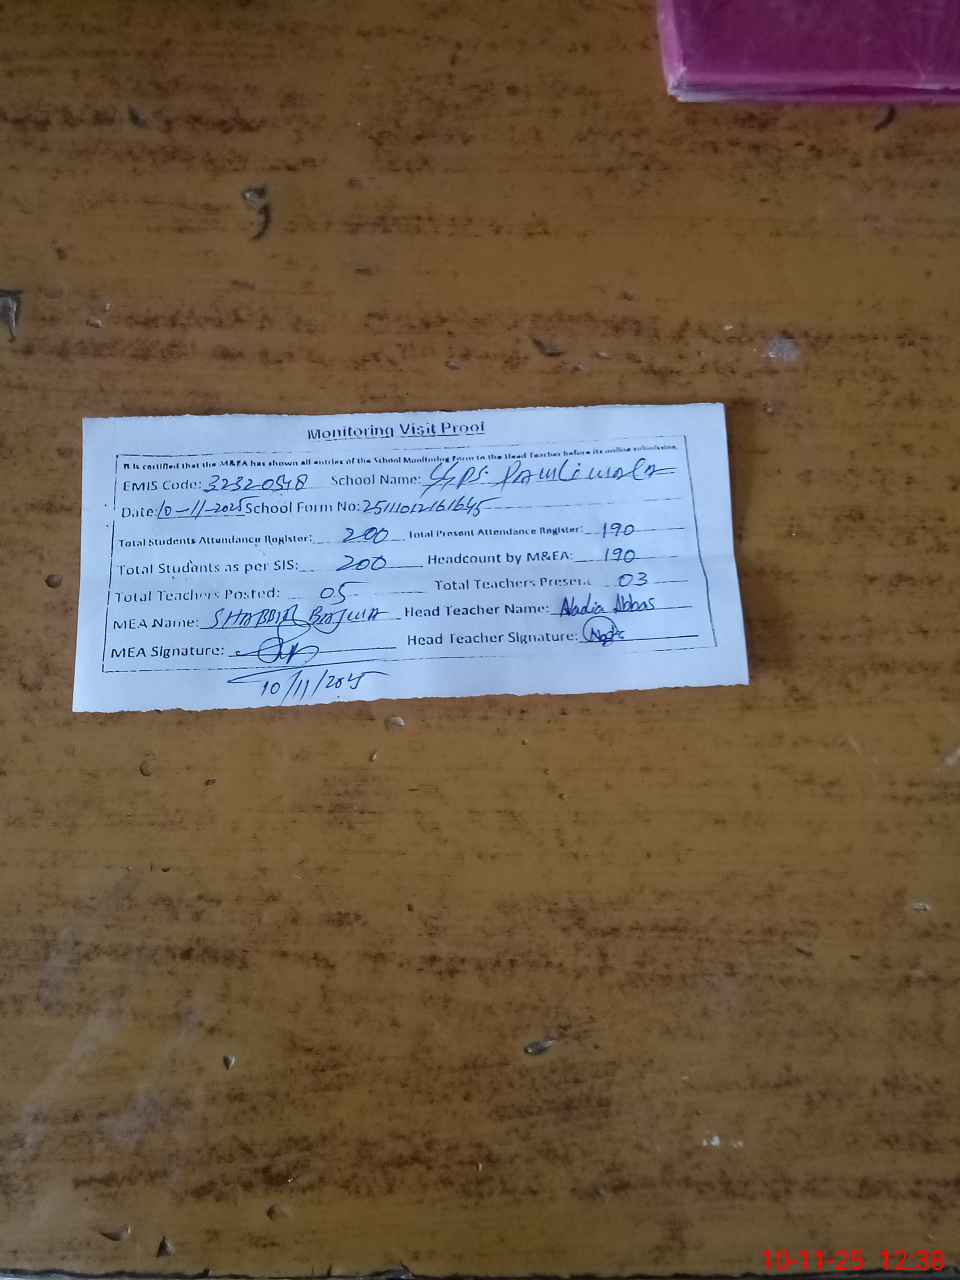 Monitoring Visit Proof
It is certified that the M&EA has shown all entries of the School Monitoring Form to the Head Teacher before its online submission.
EMIS Code: 32320548 School Name: GPS
Date: 10-11-2025 School Form No: 25111012161645
Total Students Attendance Register: 200 Total Present Attendance Register: 190
Total Students as per SIS: 200 Headcount by M&EA: 190
Total Teachers Posted: 05 Total Teachers Present 03
MEA Name: SHABBIR BAJWA Head Teacher Name: Nadia Abbas
MEA Signature: Head Teacher Signature:
10/11/2025
10-11-25 12:38